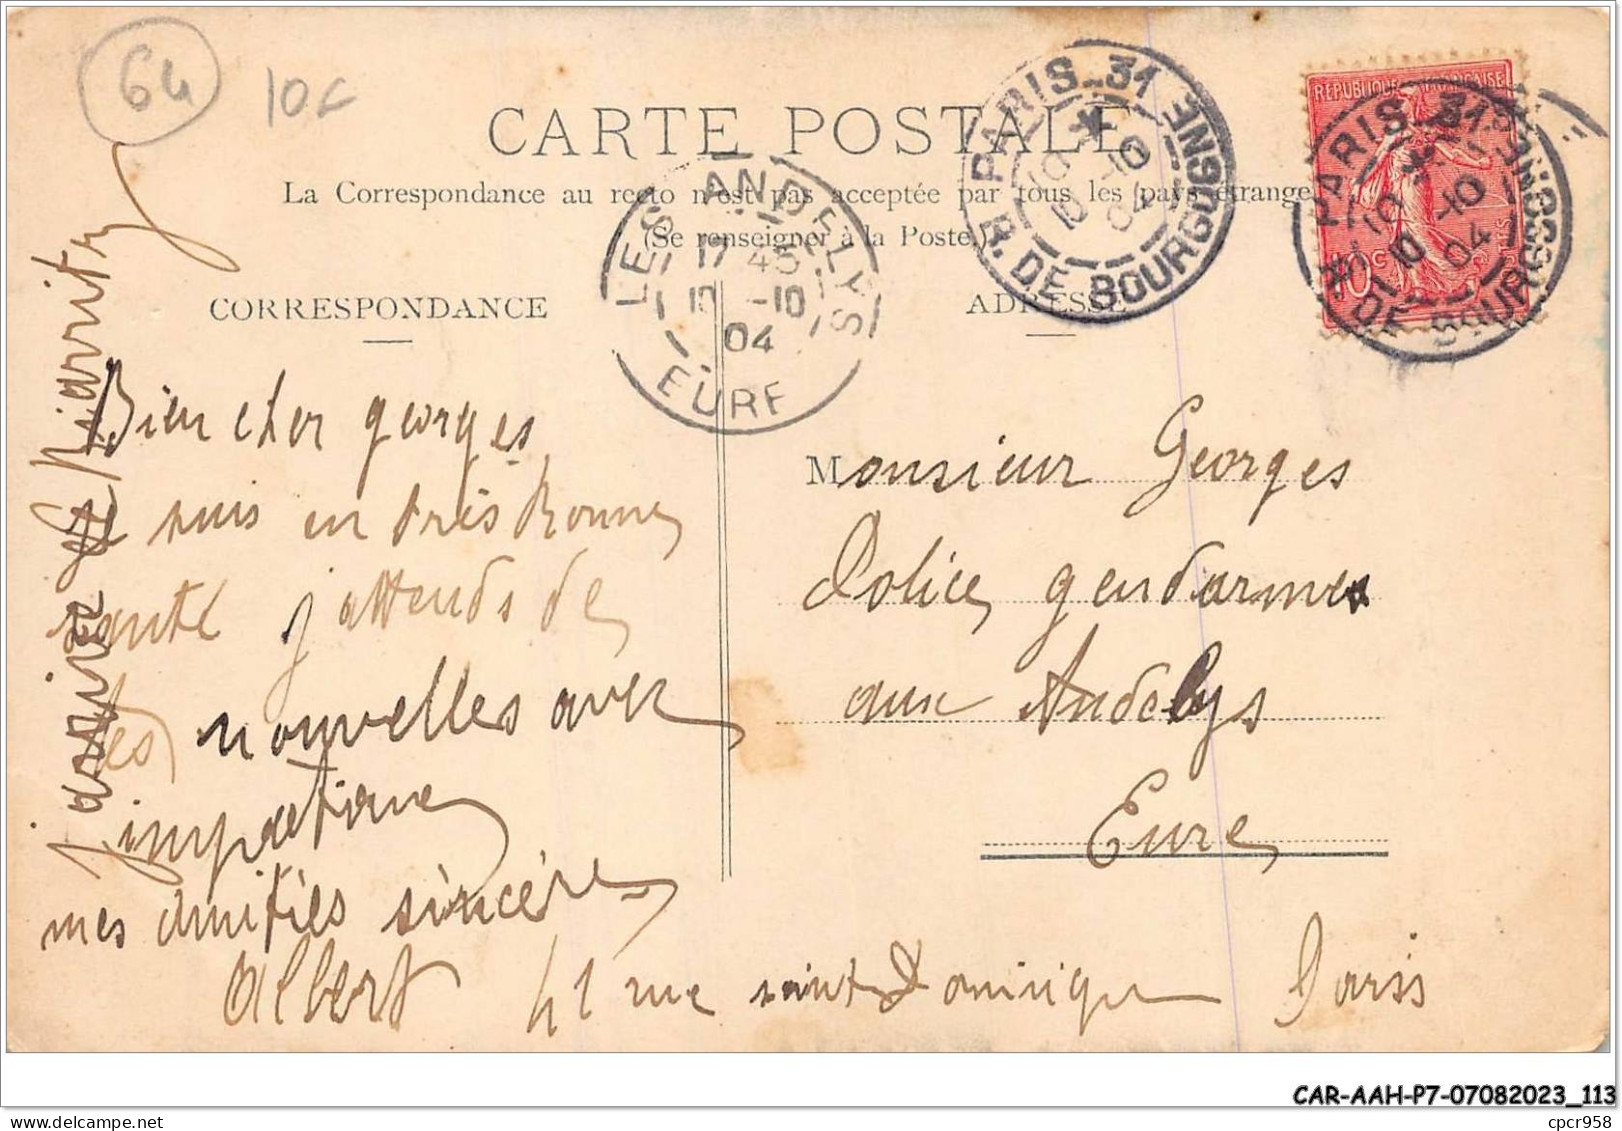 64
10c
CARTE POSTALE
La Correspondance au recto n'est pas acceptée par tous les pays étrange
(Se renseigner à la Poste.)
CORRESPONDANCE
ADRESSE
PARIS_31
R. DE BOURGOGNE
10 *-10
10 04
LES ANDELYS
17 45
10 -10
04
EURE
REPUBLIQUE FRANÇAISE
10c
PARIS_31
R. DE BOURGOGNE
10 *-10
10 04
arrive de Biarritz
Bien cher georges
Je suis en très bonne
santé j'attends de
tes nouvelles avec
impatience
mes amitiés sincère
Albert 41 rue saint Dominique Paris
Monsieur Georges
Police gendarme
aux Andelys
Eure
CAR-AAH-P7-07082023_113
cpcr958